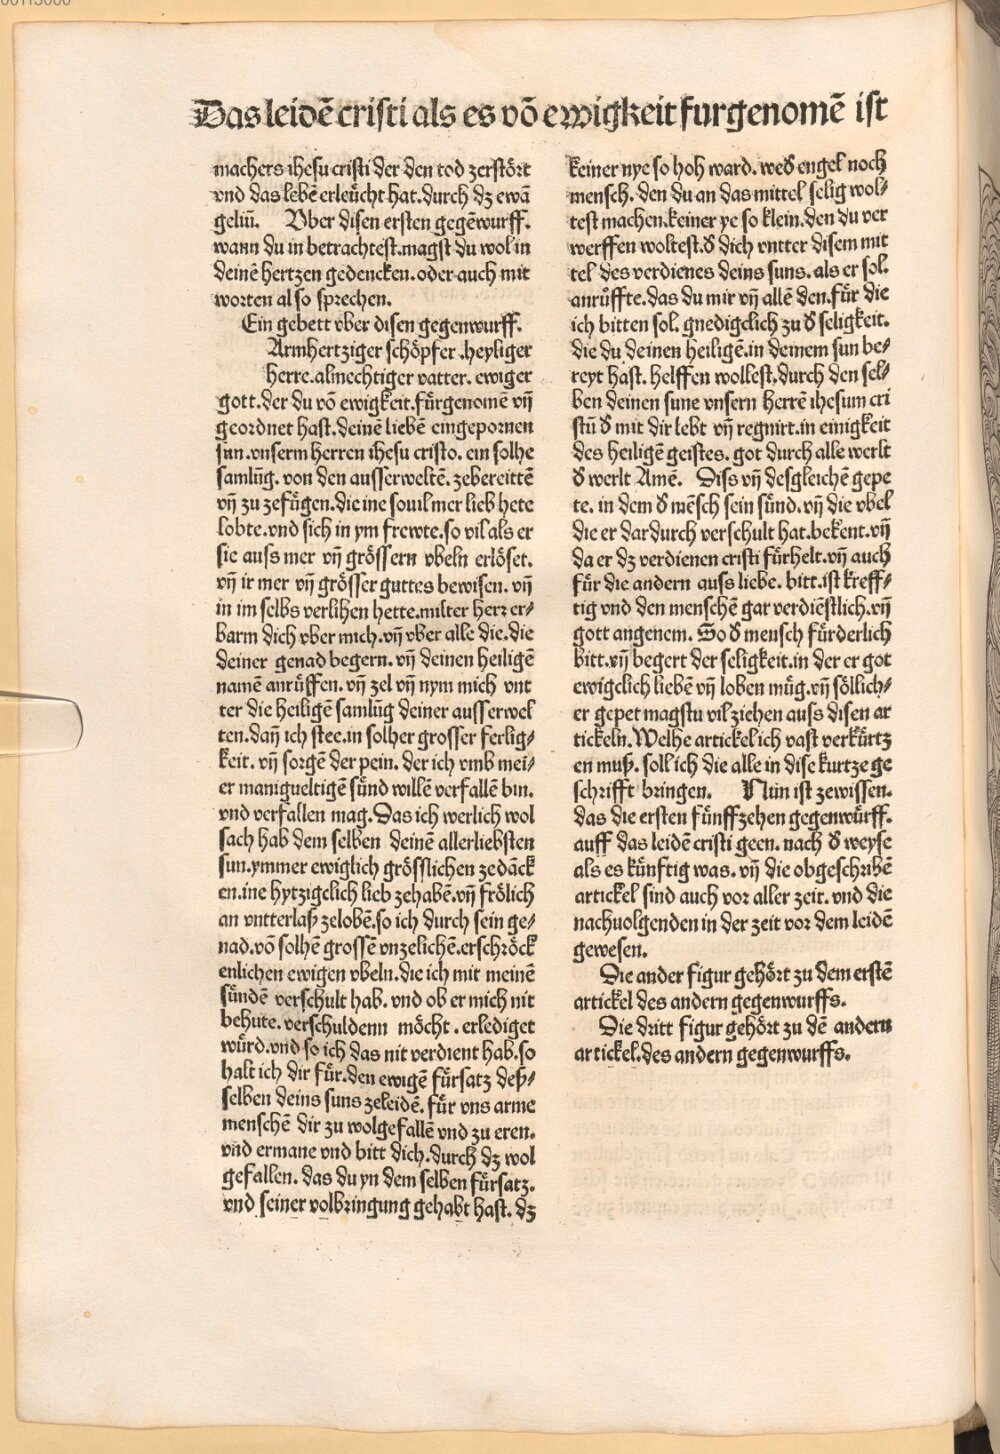 Das leidē cristi als es võ ewigkeit furgenomē ist
machers ihesu cristi der den tod zerstört
vnd das lebē erleücht hat. durch dz ewā
geliū. Vber disen ersten gegēwurff.
wann du in betrachtest. magst du wol in
deinē hertzen gedencken. oder auch mit
worten also sprechen.
Ein gebett vber disen gegenwurff.
Armhertziger schöpfer .heyliger
herre. almechtiger vatter. ewiger
gott. der du võ ewigkeit. fürgenomē vñ
geordnet hast. deinē liebē eingepornen
sun. vnserm herren ihesu cristo. ein solhe
samlūg. von den ausserweltē. zebereittē
vñ zu zefügen. die ine souil mer lieb hete
lobte. vnd sich in ym frewte. so vil als er
sie auss mer vñ grössern vbeln erlöset.
vñ ir mer vñ grösser guttes bewisen. vñ
in im selbs verlihen hette. milter herr er⸗
barm dich vber mich. vñ vber alle die. die
deiner genad begern. vñ deinen heiligē
namē anrüffen. vñ zel vñ nym mich vnt
ter die heiligē samlūg deiner ausserwel
ten. dañ ich stee. in solher grosser ferlig⸗
keit. vñ sorgē der pein. der ich vmb mei⸗
er manigueltigē sünd willē verfallē bin.
vnd verfallen mag. Das ich werlich wol
sach hab dem selben deinē allerliebsten
sun. ymmer ewiglich grösslichen zedāck
en. ine hytzigclich lieb zehabē. vñ frölich
an vntterlaß zelobē. so ich durch sein ge⸗
nad. võ solhē grossē vnzelichē. erschröck
enlichen ewigen vbeln. die ich mit meinē
sündē verschult hab. vnd ob er mich nit
behute. verschuldenn möcht. erlediget
würd. vnd so ich das nit verdient hab. so
halt ich dir für. den ewigē fürsatz deß⸗
selben deins suns zeleidē. für vns arme
menschē dir zu wolgefallē vnd zu eren.
vnd ermane vnd bitt dich. durch dz wol
gefallen. das du yn dem selben fürsatz.
vnd seiner volbringung gehabt hast. dz
keiner nye so hoh ward. wed̄ engel noch
mensch. den du an das mittel selig wol⸗
test machen. keiner ye so klein. den du ver
werffen woltest. d̄ dich vntter disem mit
tel des verdienes deins suns. als er sol.
anrüffte. das du mir vñ allē den. für die
ich bitten sol. gnedigclich zu d̄ seligkeit.
die du deinen heiligē. in deinem sun be⸗
reyt hast. helffen wollest. durch den sel⸗
ben deinen sune vnsern herrē ihesum cri
stū d̄ mit dir lebt vñ regnirt. in einigkeit
des heiligē geistes. got durch alle werlt
d̄ werlt Amē. Diss vñ desgleichē gepe
te. in dem d̄ mēsch sein sünd. vñ die vbel
die er dardurch verschult hat. bekent. vñ
da er dz verdienen cristi fürhelt. vñ auch
für die andern auss liebe. bitt. ist kreff⸗
tig vnd den menschē gar verdiēstlich. vñ
gott angenem. So d̄ mensch fürderlich
bitt. vñ begert der seligkeit. in der er got
ewigclich liebē vñ loben müg. vñ söllich⸗
er gepet magstu vil ziehen auss disen ar
tickeln. Welhe artickel ich vast verkürtz
en muß. soll ich die alle in dise kurtze ge
schrifft bringen. Nun ist zewissen.
das die ersten fünffzehen gegenwürff.
auff das leidē cristi geen. nach d̄ weyse
als es künftig was. vñ die obgeschribē
artickel sind auch vor aller zeit. vnd die
nachuolgenden in der zeit vor dem leidē
gewesen.
Die ander figur gehört zu dem erstē
artickel des andern gegenwurffs.
Die dritt figur gehört zu dē andern
artickel. des andern gegenwurffs.